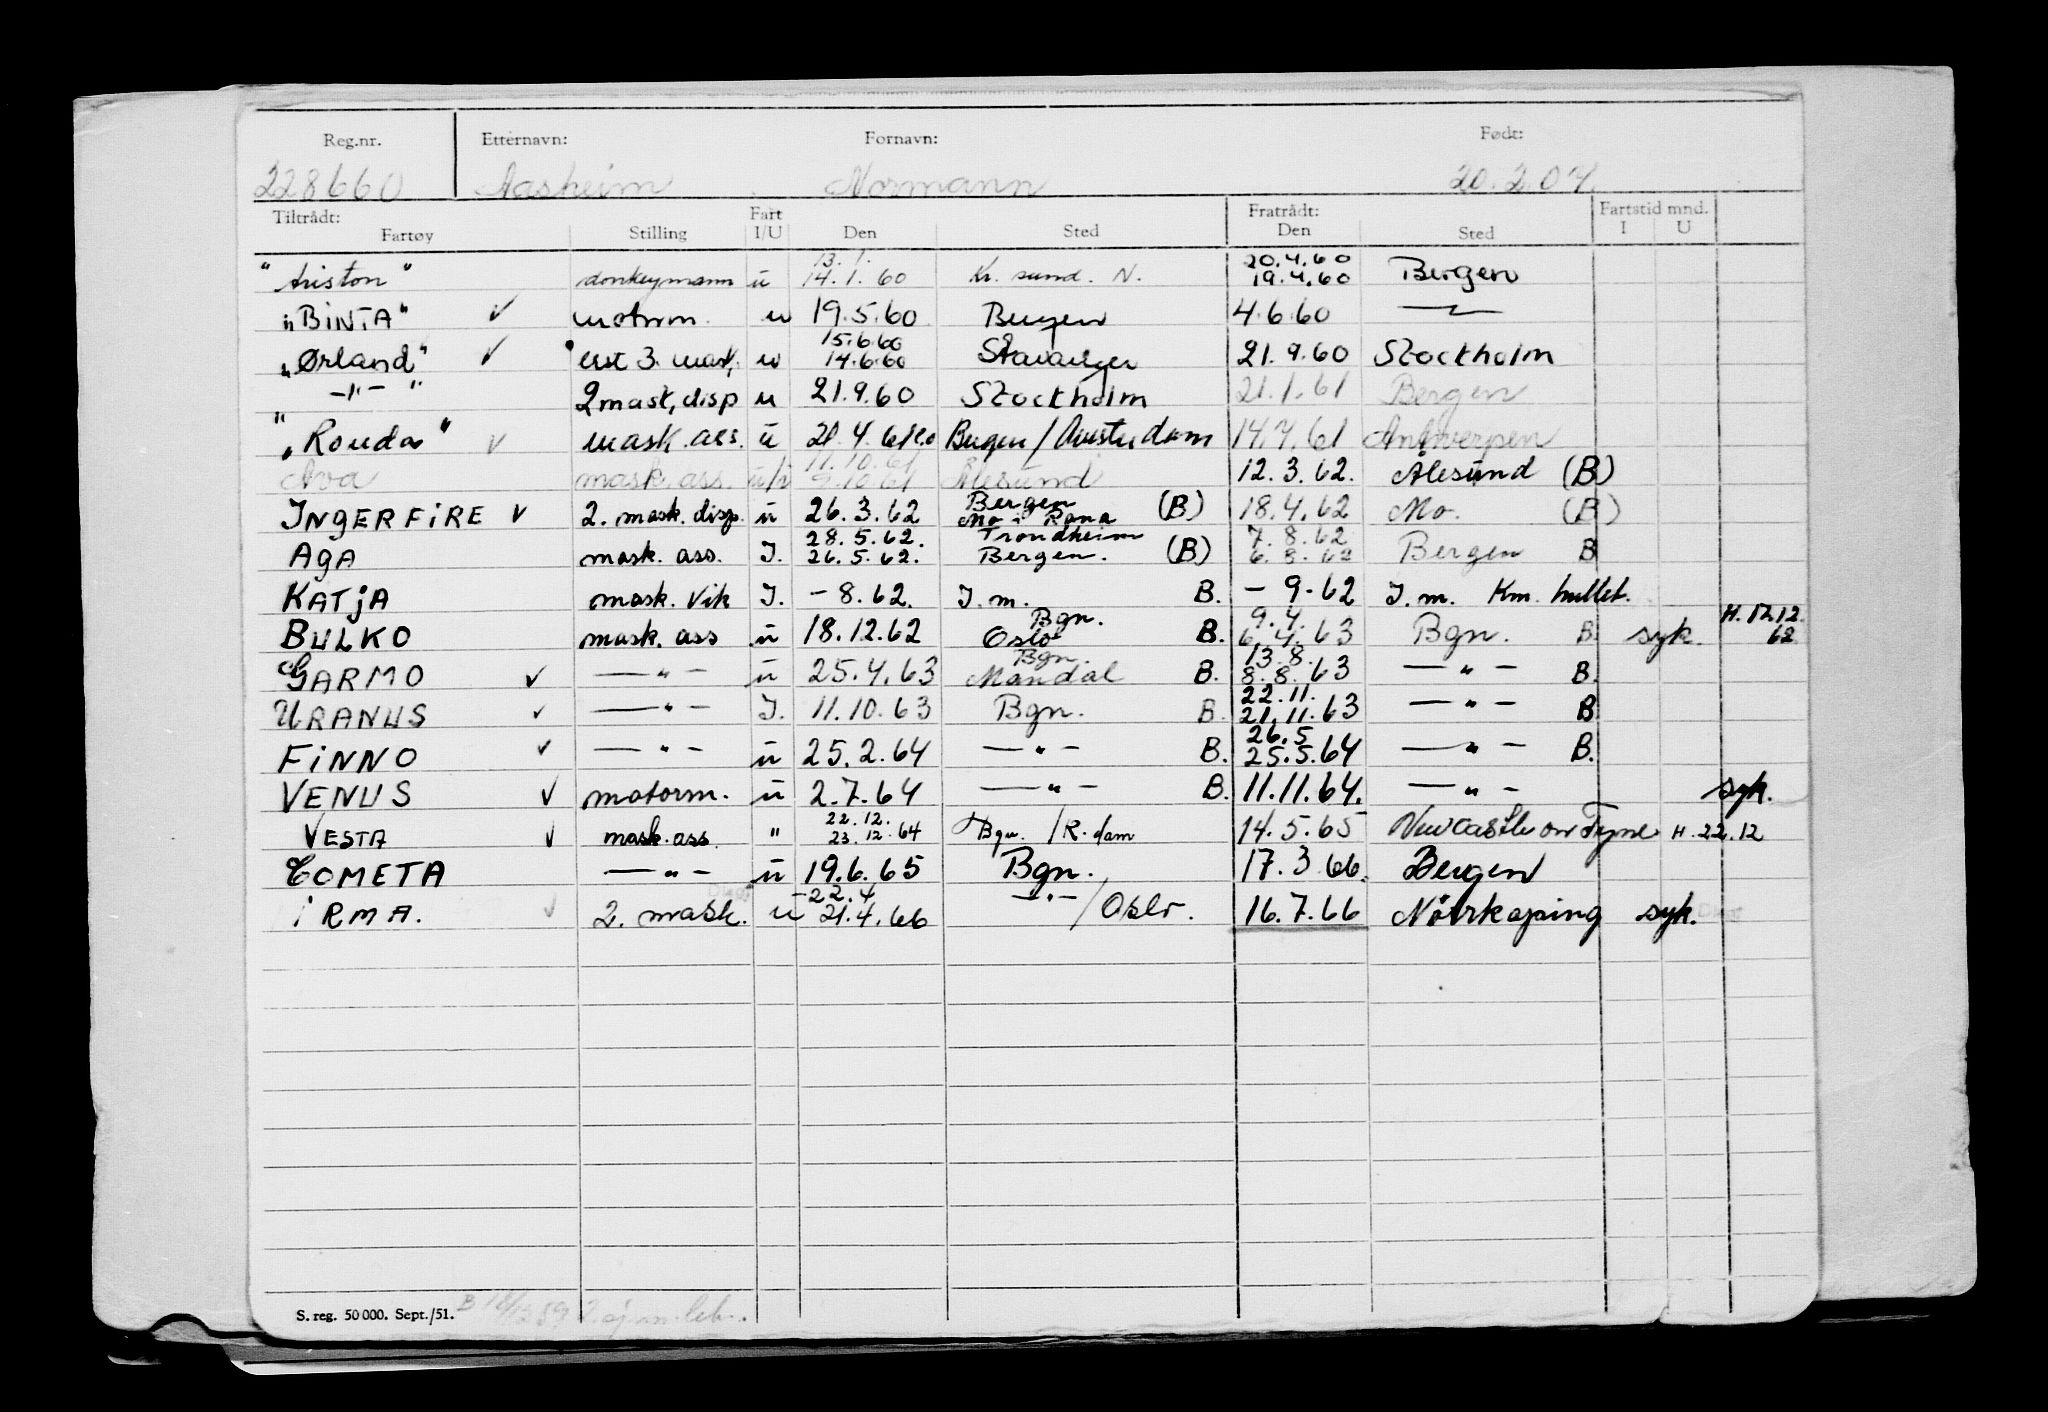 Reg.nr. Etternavn: Fornavn: Født:
228660 Aasheim Normann 20.2.07.
Tiltrådt: Fart Fratrådt: Fartstid mnd.
Fartøy Stilling I/U Den Sted Den Sted I U
13.1. 20.4.60
"Ariston" donkeymann ū 14.1.60 Kr. sund. N. 19.4.60 Bergen
"BINTA" ✓ motorm. u 19.5.60 Bergen 4.6.60 —〃—
15.6.60
"Ørland" ✓ 3. mask, u 14.6.60 Stavanger 21.9.60 Stockholm
-"- " 2 mask, disp u 21.9.60 Stockholm 21.1.61 Bergen
"Ronda" ✓ mask. ass. ū 21.4.61 Bergen/Amsterdam 14.7.61 Antwerpen
11.10.61
Ava mask. ass. u/i 9.10.61 Ålesund 12.3.62. Ålesund (B)
Bergen
INGERFIRE ✓ 2. mask. disp. ū 26.3.62 Mo i Rana (B) 18.4.62 Mo. (B)
28.5.62. Trondheim 7.8.62
AGA mask. ass. I. 26.5.62. Bergen. (B) 6.8.62 Bergen B
KATJA mask. vik I. -8.62. I.m. B. -9-62 I.m. Km. hullet.
Bgn. 9.4. H. 17.12.
BULKO mask. ass ū 18.12.62 Oslo B. 6.4.63 Bgn. B. syk. 62
Bgn. 13.8.
GARMO ✓ —〃— ū 25.4.63 Mandal B. 8.8.63 —〃— B.
22.11.
URANUS ✓ —〃— I. 11.10.63 Bgn. B. 21.11.63 —〃— B
26.5
FINNO ✓ —〃— ū 25.2.64 —〃— B. 25.5.64 —〃— B.
VENUS ✓ motorm. ū 2.7.64 —〃— B. 11.11.64. —〃— syk.
22.12.
VESTA ✓ mask. ass. " 23.12.64 Bgn. /R.dam 14.5.65 Newcastle on Tyne H. 22.12
COMETA —〃— ū 19.6.65 Bgn. 17.3.66. Bergen
-22.4
IRMA. ✓ 2. mask. u 21.4.66 -"-/Oslo. 16.7.66 Nörrkøping syk.
S. reg. 50 000. Sept./51.